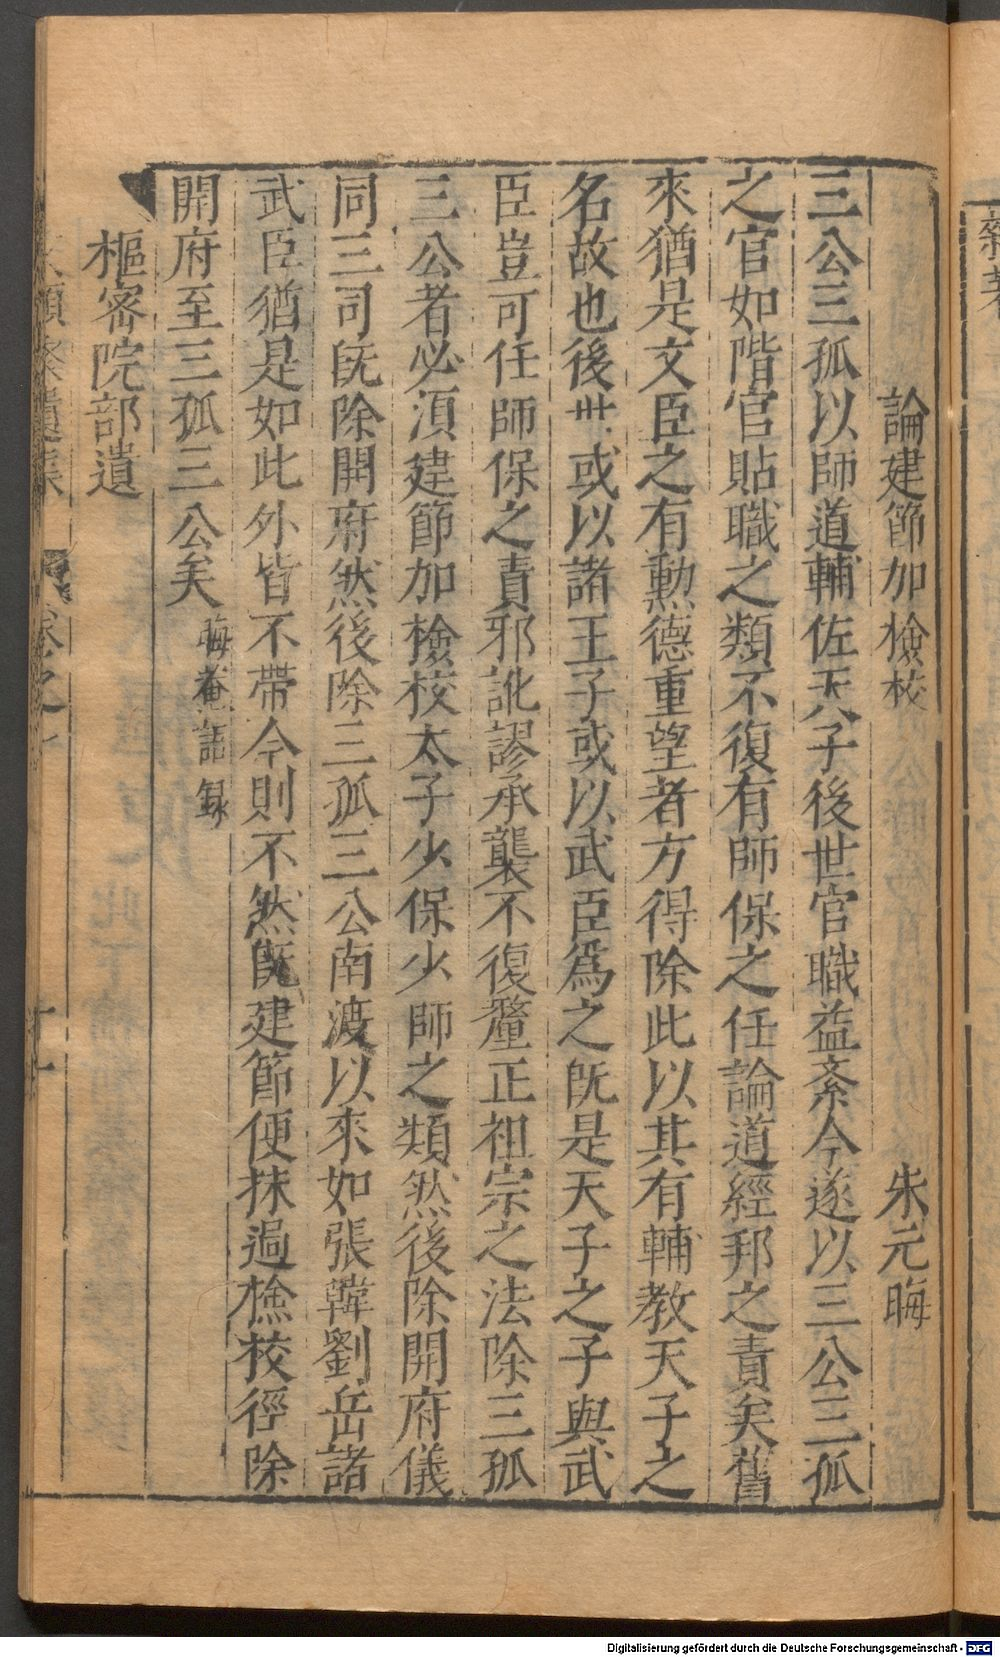 論建節加檢校　朱元晦
三公三孤以師道輔佐天子後世官職益紊今遂以三公三孤
之官如階官貼職之類不復有師保之任論道經邦之責矣舊
來猶是文臣之有勲德重望者方得除此以其有輔教天子之
名故也後世或以諸王子或以武臣爲之旣是天子之子與武
臣豈可任師保之責邪訛謬承襲不復釐正祖宗之法除三孤
三公者必湏建節加檢校太子少保少師之類然後除開府儀
同三司旣除開府然後除三孤三公南渡以來如張韓劉岳諸
武臣猶是如此外皆不帶今則不然旣建節便抹過檢校徑除
開府至三孤三公矣晦菴語録
樞密院部遺
Digitalisierung gefördert durch die Deutsche Forschungsgemeinschaft - DFG